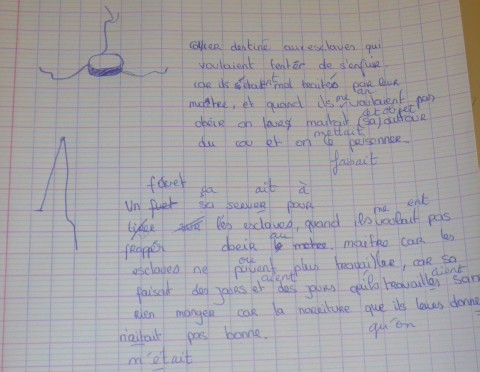 collier destiné aux esclaves qui
voulaient tenter de s'enfuir.
car ils étaient mal traités par leur
maître, et quand ils ne voulaient pas
dit objet
obéir on leurs mettait (sa) autour
mettait
du cou et on le
faisait
fouet sa ait à
Un fuet sa servier pour
tiere sur lés esclaves, quand ils ne voulait pas
ent
frapper obeir au metre. maitre car les
esclaves ne ou pouvent plus travailler, car sa
faisait des jours et des jours qu'ils travailles sans
aient aient
rien manger car la nouriture que ils leurs donne
n'aitait pas bonne. qu'on
n'était